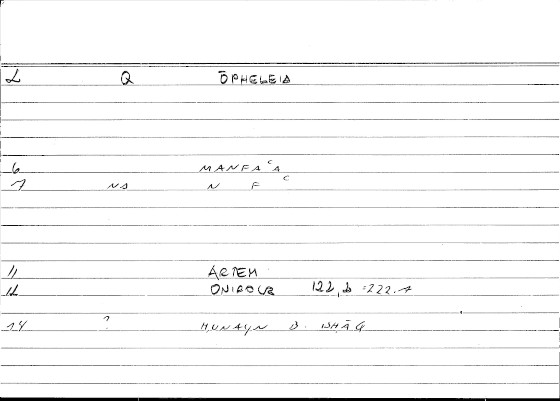 2 Q ŌPHELEIA
6 MANFAᶜA
7 NS N F ᶜ
11 ARTEM
12 ONIROCR 122,2 =222.7
14 ? ḤUNAYN B. ISḤĀQ